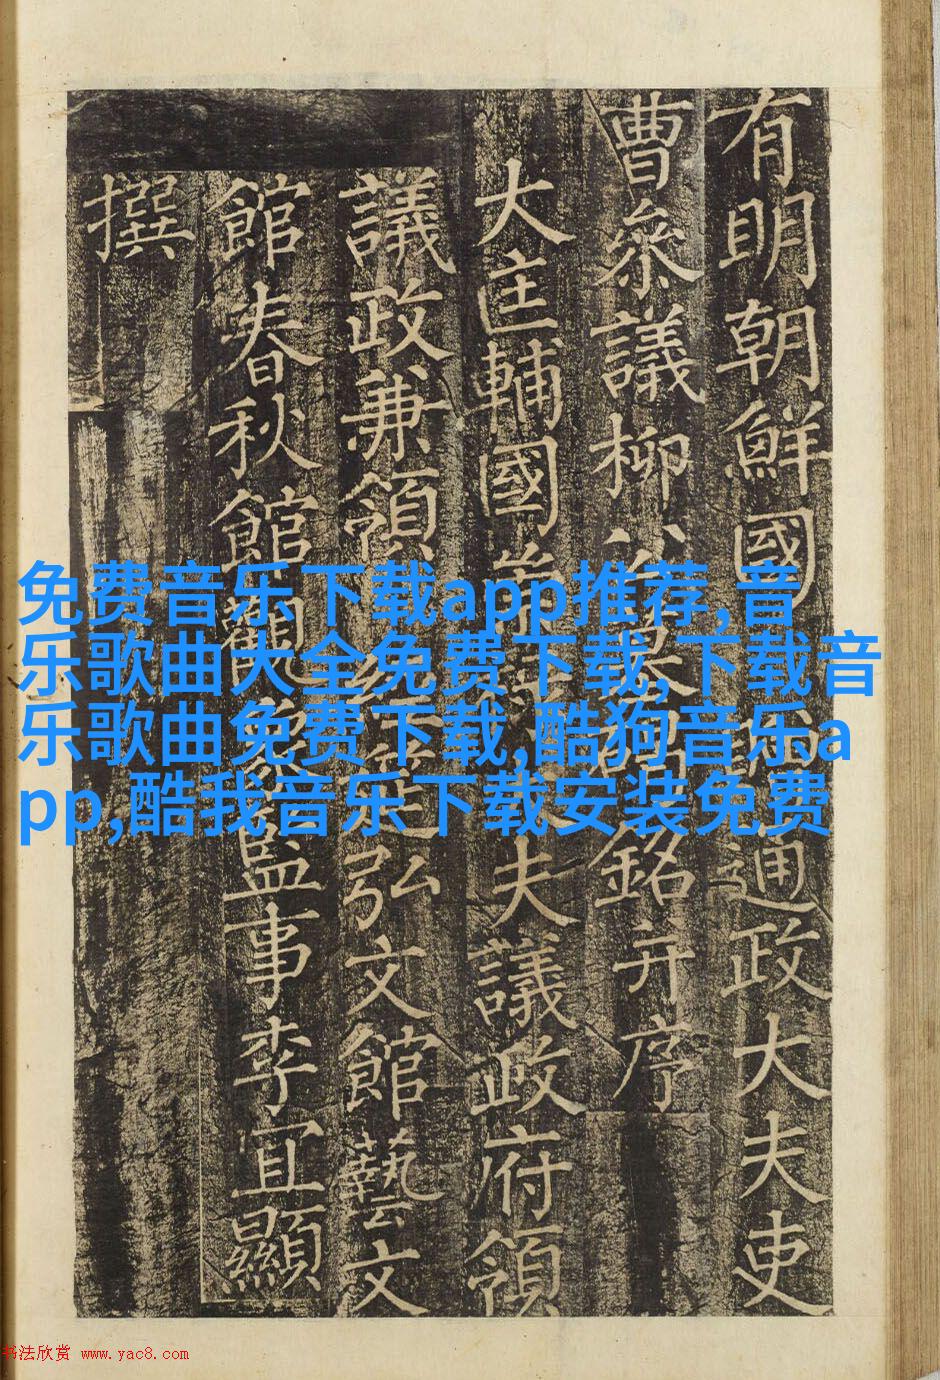 有明朝鮮國通政大夫吏
曹叅議柳公墓銘并序
大匡輔國崇大夫議政府領
議政兼領筵弘文館藝文
館春秋館觀象監事李宜顯
撰
免费音乐下载app推荐,音
乐歌曲大全免费下载,下载音
乐歌曲免费下载,酷狗音乐a
pp,酷我音乐下载安装免费
书法欣赏 www.yac8.com